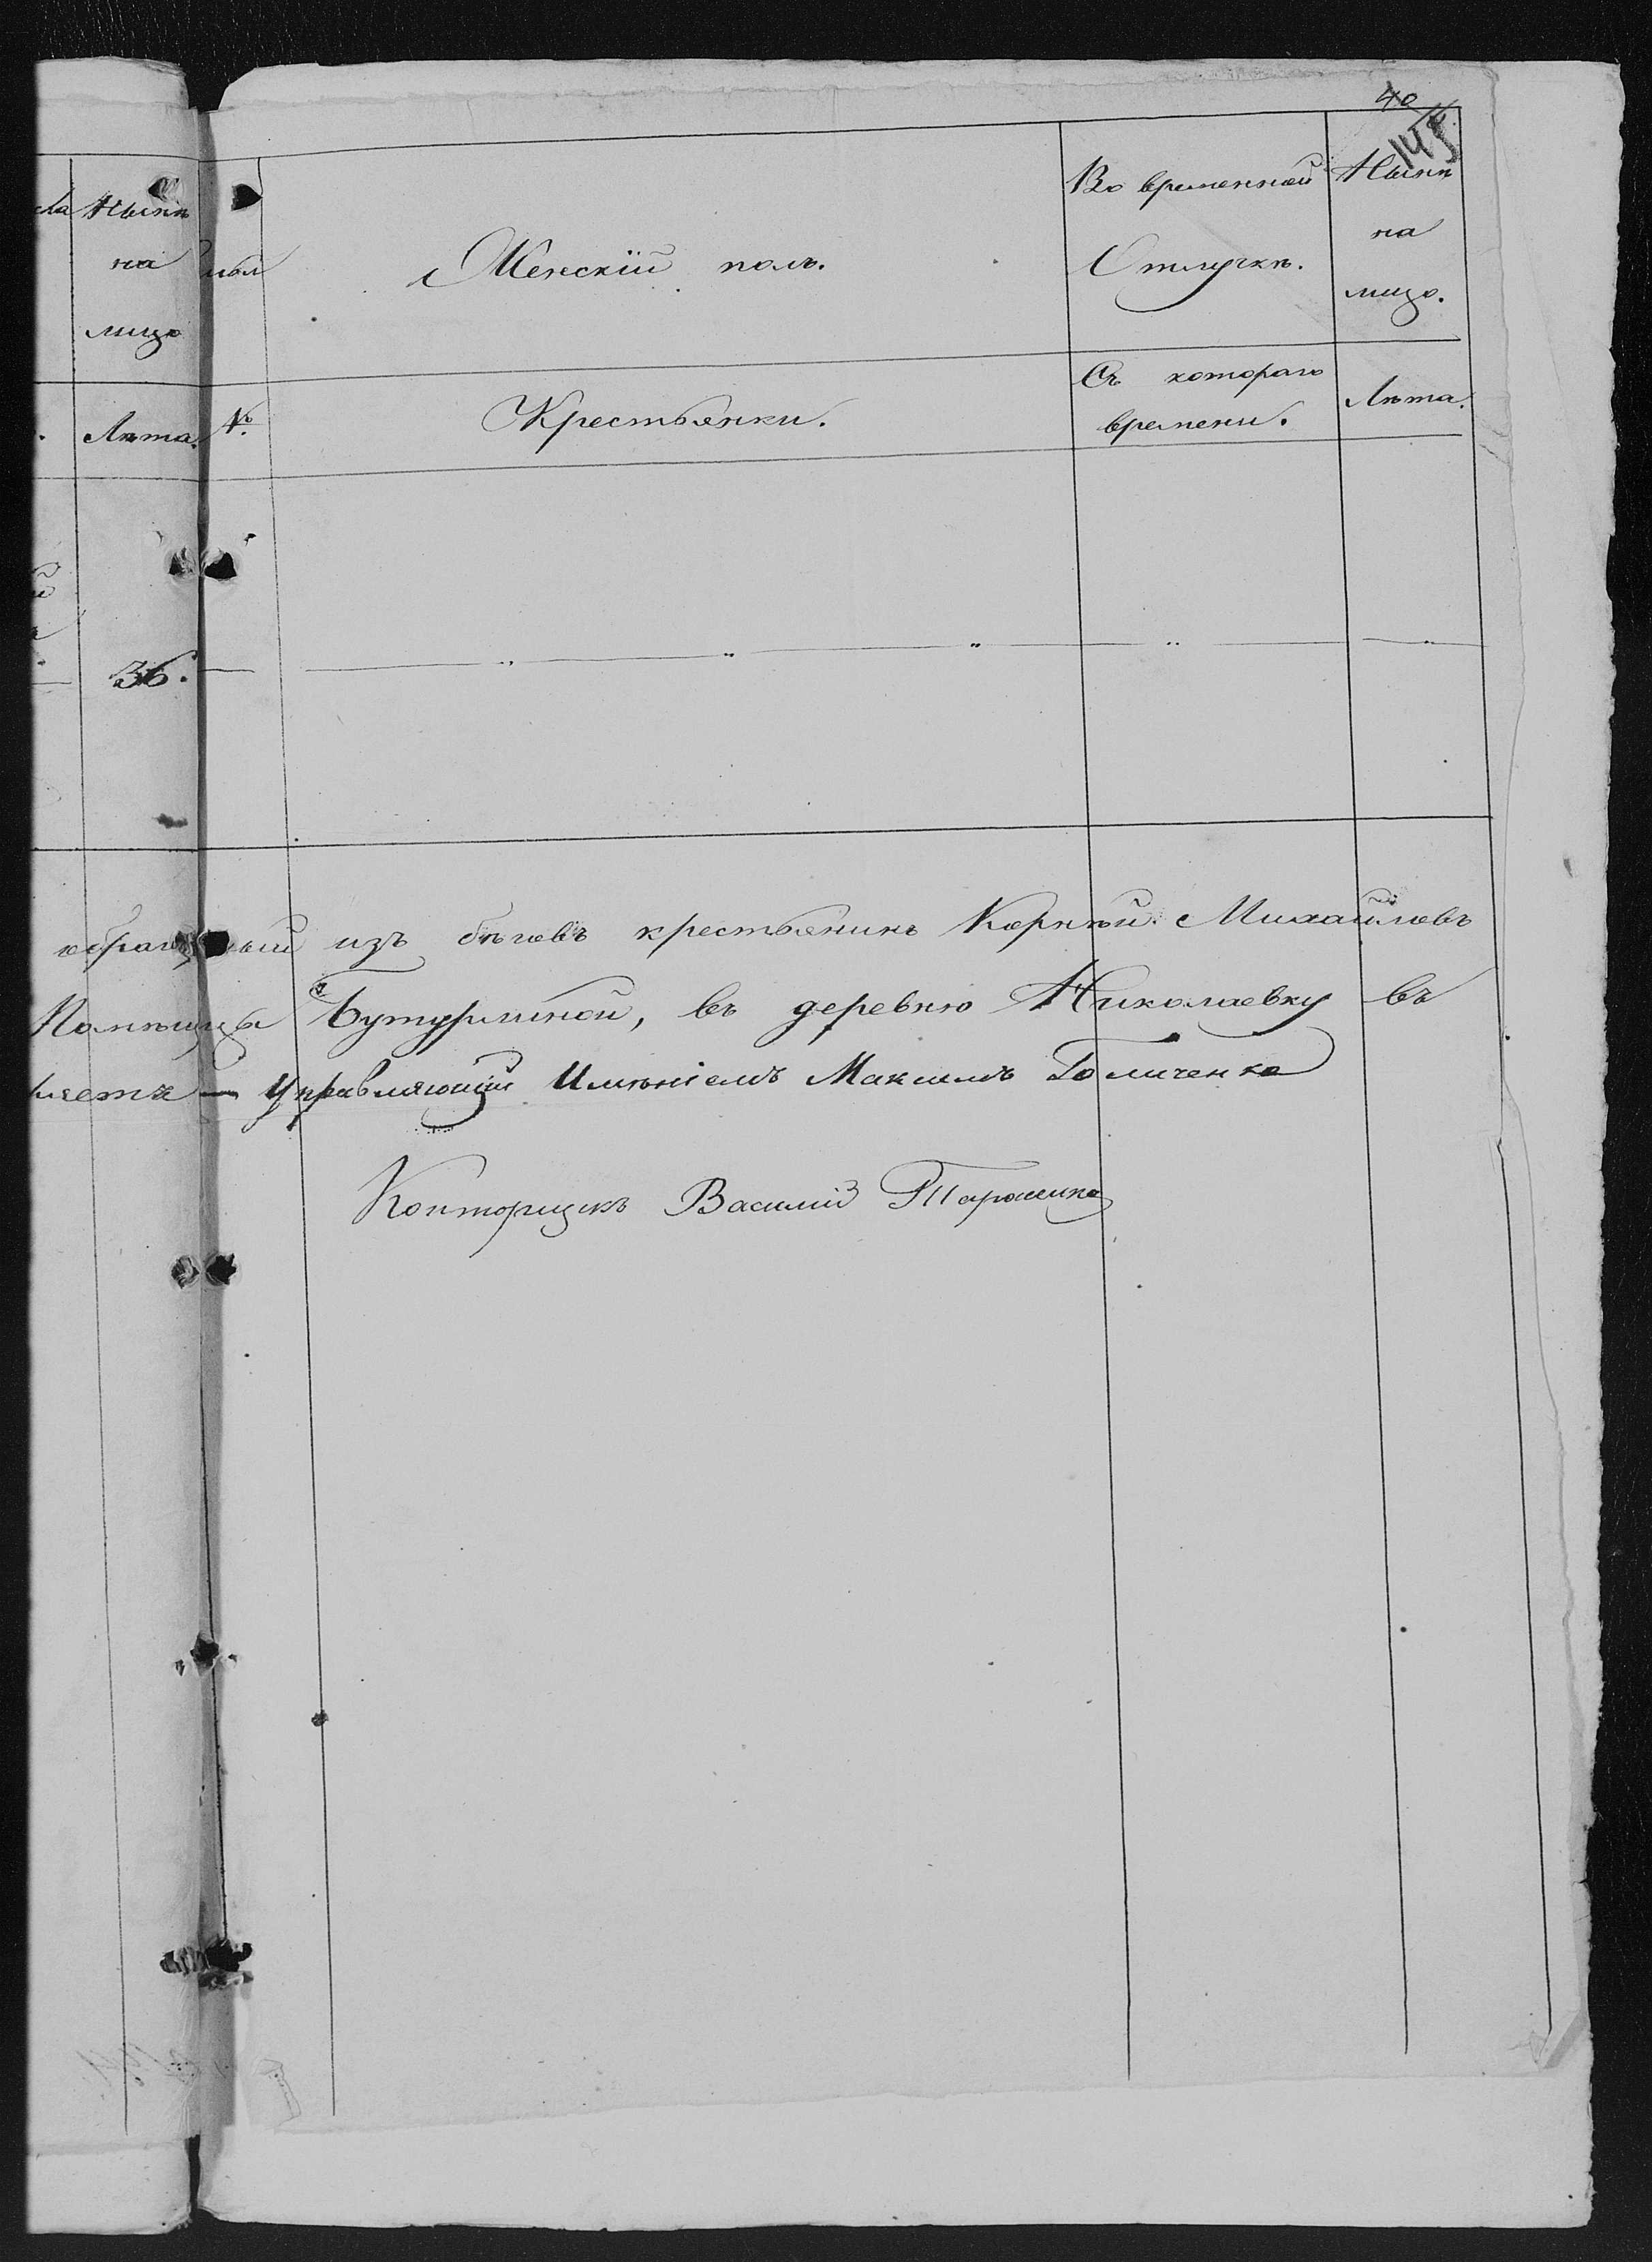 40
145
ла Нынѣ на лицо
Женскій полъ.
Во временной Отлучкѣ.
Нынѣ на лицо.
Лѣта.
№
Крестьянки.
Съ котораго времени.
Лѣта.
36.
изъ бѣговъ крестьянинъ Корнѣй Михайловъ
Помѣщицы Бутурлиной, въ деревню Николаевку въ
ляетъ — Управляющій Имѣніемъ Максимъ Голиченко
Конторщикъ Василій Тарасенко